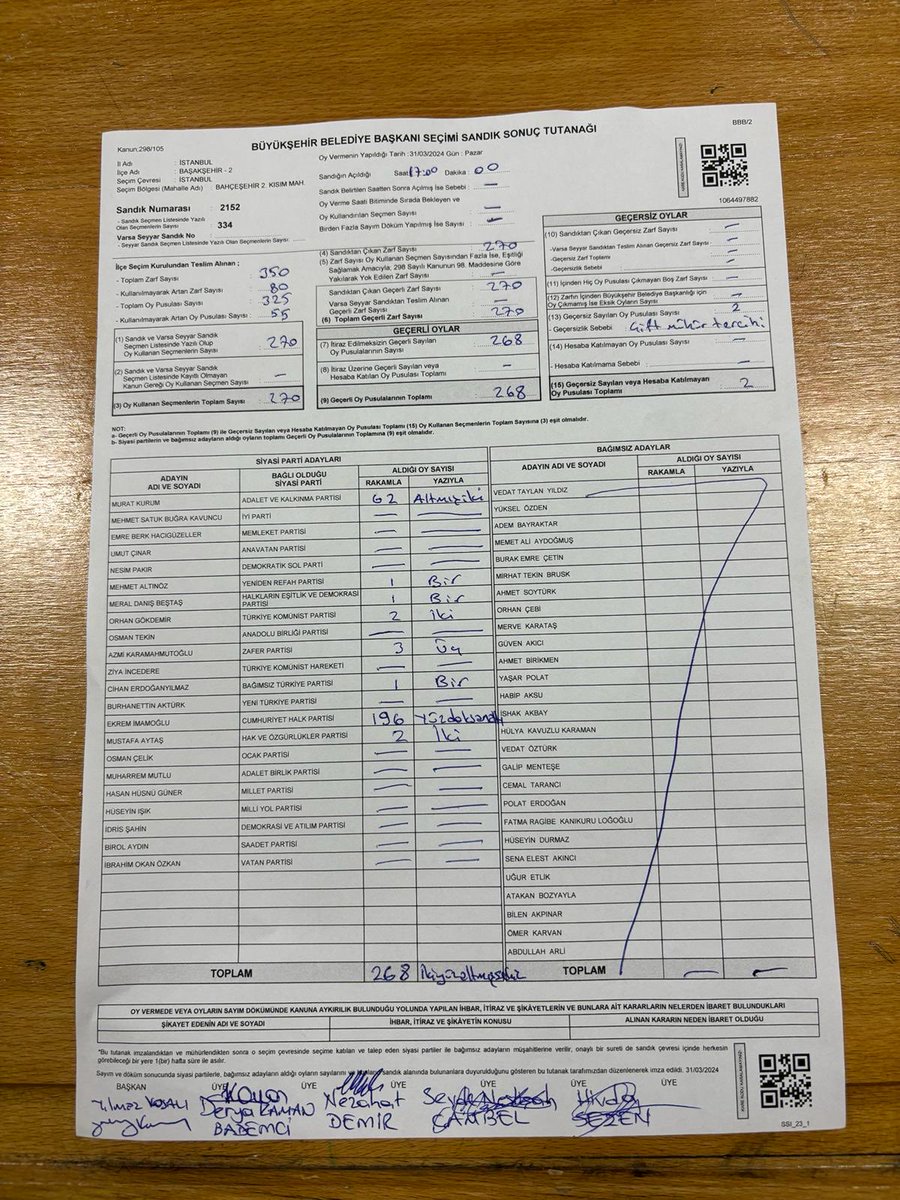 BBB/2
Kanun;298/105
BÜYÜKŞEHİR BELEDİYE BAŞKANI SEÇİMİ SANDIK SONUÇ TUTANAĞI
İl Adı : İSTANBUL
İlçe Adı : BAŞAKŞEHİR - 2
Seçim Çevresi : İSTANBUL
Seçim Bölgesi (Mahalle Adı) : BAHÇEŞEHİR 2. KISIM MAH.
Sandık Numarası : 2152
- Sandık Seçmen Listesinde Yazılı
Olan Seçmenlerin Sayısı : 334
Varsa Seyyar Sandık No
- Seyyar Sandık Listesinde Yazılı Olan Seçmenlerin Sayısı:
Oy Vermenin Yapıldığı Tarih : 31/03/2024 Gün : Pazar
Sandığın Açıldığı Saat 17:00 Dakika : 00
Sandık Belirtilen Saatten Sonra Açılmış İse Sebebi : —
Oy Verme Saati Bitiminde Sırada Bekleyen ve
Oy Kullandırılan Seçmen Sayısı : —
Birden Fazla Sayım Döküm Yapılmış İse Sayısı : —
1064497882
İlçe Seçim Kurulundan Teslim Alınan ;
- Toplam Zarf Sayısı : 350
- Kullanılmayarak Artan Zarf Sayısı : 80
- Toplam Oy Pusulası Sayısı : 325
- Kullanılmayarak Artan Oy Pusulası Sayısı : 55
(1) Sandık ve Varsa Seyyar Sandık
Seçmen Listesinde Yazılı Olup
Oy Kullanan Seçmenlerin Sayısı : 270
(2) Sandık ve Varsa Seyyar Sandık
Seçmen Listesinde Kayıtlı Olmayan
Kanun Gereği Oy Kullanan Seçmen Sayısı : —
(3) Oy Kullanan Seçmenlerin Toplam Sayısı : 270
(4) Sandıktan Çıkan Zarf Sayısı : 270
(5) Zarf Sayısı Oy Kullanan Seçmen Sayısından Fazla İse, Eşitliği
Sağlamak Amacıyla, 298 Sayılı Kanunun 98. Maddesine Göre
Yakılarak Yok Edilen Zarf Sayısı : —
Sandıktan Çıkan Geçerli Zarf Sayısı : 270
Varsa Seyyar Sandıktan Teslim Alınan
Geçerli Zarf Sayısı : —
(6) Toplam Geçerli Zarf Sayısı : 270
GEÇERLİ OYLAR
(7) İtiraz Edilmeksizin Geçerli Sayılan
Oy Pusulalarının Sayısı : 268
(8) İtiraz Üzerine Geçerli Sayılan veya
Hesaba Katılan Oy Pusulası Toplamı : —
(9) Geçerli Oy Pusulalarının Toplamı : 268
GEÇERSİZ OYLAR
(10) Sandıktan Çıkan Geçersiz Zarf Sayısı : —
-Varsa Seyyar Sandıktan Teslim Alınan Geçersiz Zarf Sayısı : —
-Geçersiz Zarf Toplamı : —
-Geçersizlik Sebebi : —
(11) İçinden Hiç Oy Pusulası Çıkmayan Boş Zarf Sayısı : —
(12) Zarfın İçinden Büyükşehir Belediye Başkanlığı için
Oy Çıkmamış İse Eksik Oyların Sayısı : —
(13) Geçersiz Sayılan Oy Pusulası Sayısı : 2
- Geçersizlik Sebebi : Çift mühür tercihi
(14) Hesaba Katılmayan Oy Pusulası Sayısı : —
- Hesaba Katılmama Sebebi : —
(15) Geçersiz Sayılan veya Hesaba Katılmayan
Oy Pusulası Toplamı : 2
NOT:
a- Geçerli Oy Pusulalarının Toplamı (9) ile Geçersiz Sayılan veya Hesaba Katılmayan Oy Pusulası Toplamı (15) Oy Kullanan Seçmenlerin Toplam Sayısına (3) eşit olmalıdır.
b- Siyasi partilerin ve bağımsız adayların aldığı oyların toplamı Geçerli Oy Pusulalarının Toplamına (9) eşit olmalıdır.
SİYASİ PARTİ ADAYLARI
ADAYIN ADI VE SOYADI BAĞLI OLDUĞU SİYASİ PARTİ ALDIĞI OY SAYISI RAKAMLA YAZIYLA
MURAT KURUM ADALET VE KALKINMA PARTİSİ 62 Altmışiki
MEHMET SATUK BUĞRA KAVUNCU İYİ PARTİ — —
EMRE BERK HACIGÜZELLER MEMLEKET PARTİSİ — —
UMUT ÇINAR ANAVATAN PARTİSİ — —
NESİM PAKIR DEMOKRATİK SOL PARTİ — —
MEHMET ALTINÖZ YENİDEN REFAH PARTİSİ 1 Bir
MERAL DANIŞ BEŞTAŞ HALKLARIN EŞİTLİK VE DEMOKRASİ PARTİSİ 1 Bir
ORHAN GÖKDEMİR TÜRKİYE KOMÜNİST PARTİSİ 2 İki
OSMAN TEKİN ANADOLU BİRLİĞİ PARTİSİ — —
AZMİ KARAMAHMUTOĞLU ZAFER PARTİSİ 3 Üç
ZİYA İNCEDERE TÜRKİYE KOMÜNİST HAREKETİ — —
CİHAN ERDOĞANYILMAZ BAĞIMSIZ TÜRKİYE PARTİSİ 1 Bir
BURHANETTİN AKTÜRK YENİ TÜRKİYE PARTİSİ — —
EKREM İMAMOĞLU CUMHURİYET HALK PARTİSİ 196
MUSTAFA AYTAŞ HAK VE ÖZGÜRLÜKLER PARTİSİ 2 İki
OSMAN ÇELİK OCAK PARTİSİ — —
MUHARREM MUTLU ADALET BİRLİK PARTİSİ — —
HASAN HÜSNÜ GÜNER MİLLET PARTİSİ — —
HÜSEYİN IŞIK MİLLİ YOL PARTİSİ — —
İDRİS ŞAHİN DEMOKRASİ VE ATILIM PARTİSİ — —
BİROL AYDIN SAADET PARTİSİ — —
İBRAHİM OKAN ÖZKAN VATAN PARTİSİ — —
TOPLAM 268
BAĞIMSIZ ADAYLAR
ADAYIN ADI VE SOYADI ALDIĞI OY SAYISI RAKAMLA YAZIYLA
VEDAT TAYLAN YILDIZ
YÜKSEL ÖZDEN
ADEM BAYRAKTAR
MEMET ALİ AYDOĞMUŞ
BURAK EMRE ÇETİN
MİRHAT TEKİN BRUSK
AHMET SOYTÜRK
ORHAN ÇEBİ
MERVE KARATAŞ
GÜVEN AKICI
AHMET BİRİKMEN
YAŞAR POLAT
HABİP AKSU
İSHAK AKBAY
HÜLYA KAVUZLU KARAMAN
VEDAT ÖZTÜRK
GALİP MENTEŞE
CEMAL TARANCI
POLAT ERDOĞAN
FATMA RAGİBE KANIKURU LOĞOĞLU
HÜSEYİN DURMAZ
SENA ELEST AKINCI
UĞUR ETLİK
ATAKAN BOZYAYLA
BİLEN AKPINAR
ÖMER KARVAN
ABDULLAH ARLİ
TOPLAM — —
OY VERMEDE VEYA OYLARIN SAYIM DÖKÜMÜNDE KANUNA AYKIRILIK BULUNDUĞU YOLUNDA YAPILAN İHBAR, İTİRAZ VE ŞİKÂYETLERİN VE BUNLARA AİT KARARLARIN NELERDEN İBARET BULUNDUKLARI
ŞİKAYET EDENİN ADI VE SOYADI İHBAR, İTİRAZ VE ŞİKÂYETİN KONUSU ALINAN KARARIN NEDEN İBARET OLDUĞU
*Bu tutanak imzalandıktan ve mühürlendikten sonra o seçim çevresinde seçime katılan ve talep eden siyasi partiler ile bağımsız adayların müşahitlerine verilir, onaylı bir sureti de seçim çevresi içinde herkesin
görebileceği bir yere 1(bir) hafta süre ile asılır.
Sayım ve döküm sonucunda siyasi partilerle, bağımsız adayların aldığı oyların sayılarını ve sandık alanında bulunanlara duyurulduğunu gösteren bu tutanak tarafımızdan düzenlenerek imza edildi. 31/03/2024
BAŞKAN ÜYE ÜYE ÜYE ÜYE
Yılmaz Derya KAMAN BADEMCİ Nezahat DEMİR ÇAMBEL SEZEN
SSI_23_1